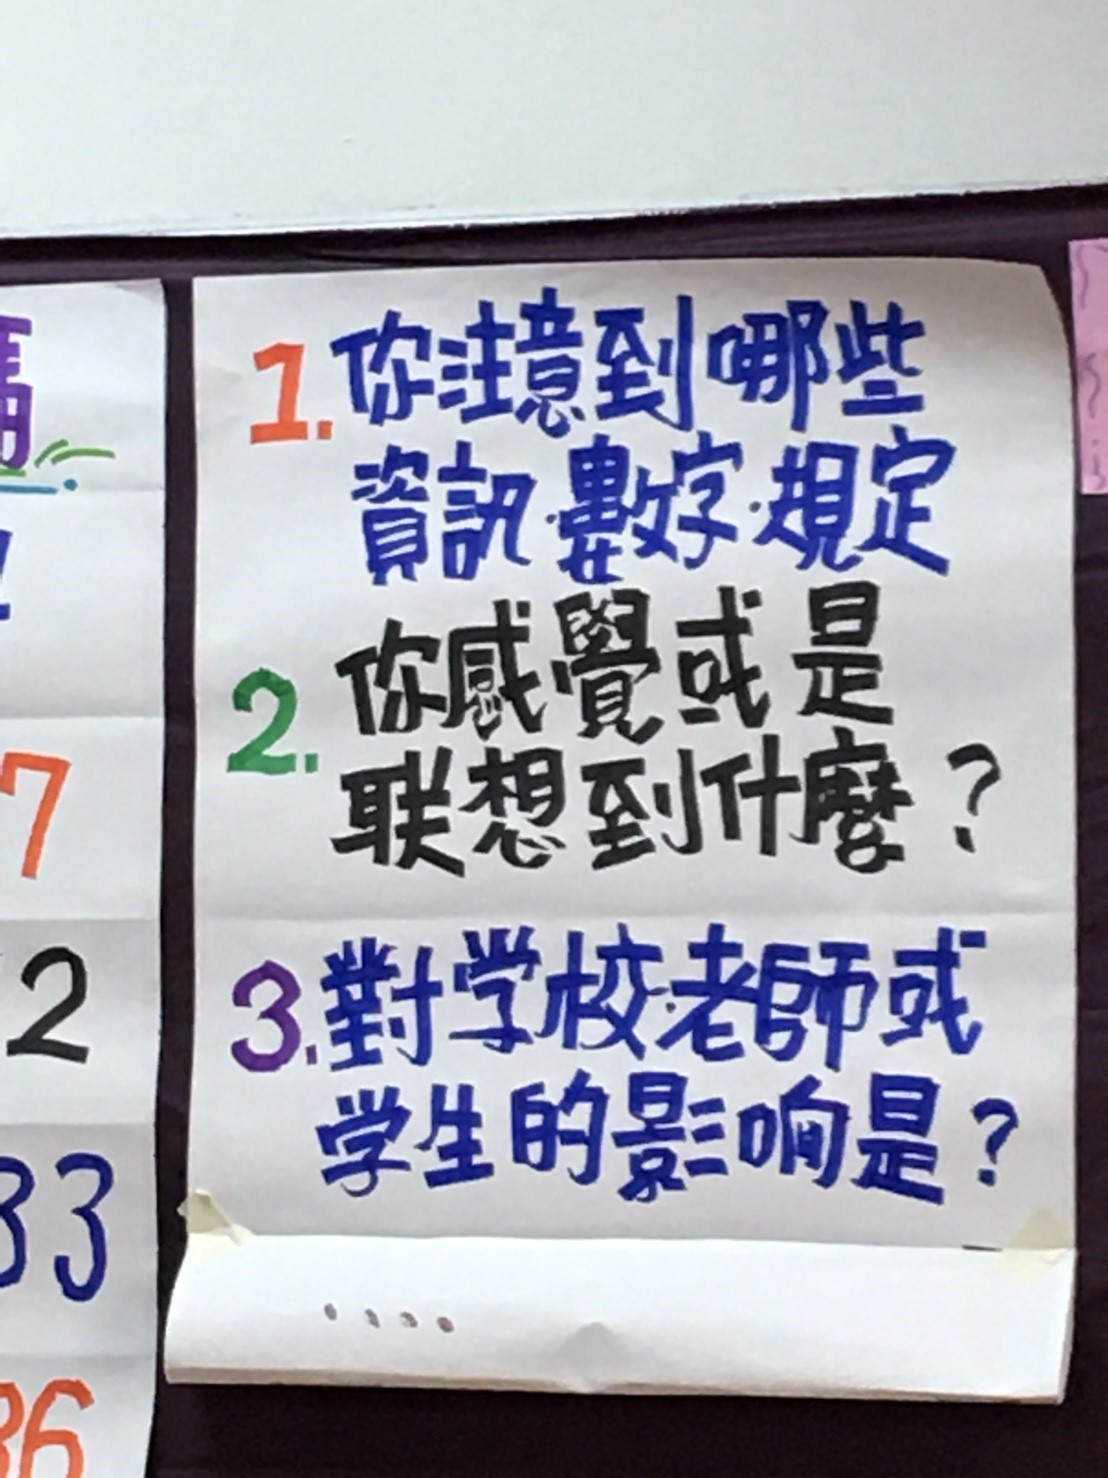 1. 你注意到哪些
資訊·數字·規定
2. 你感覺或是
联想到什麼?
3. 對学校·老師或
学生的影响是?
7
2
33
36